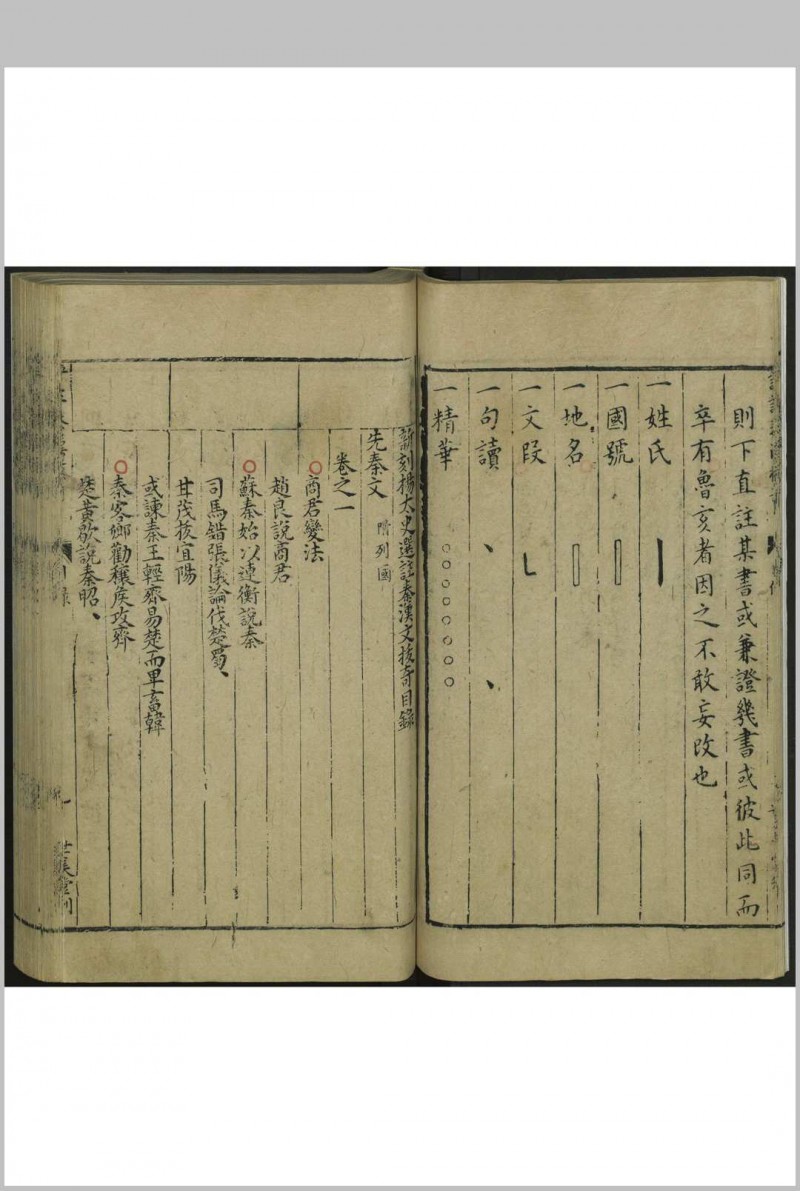 則下直註某書或兼證幾書或彼此同而
卒有魯亥者因之不敢妄改也
一姓氏
一國號
一地名
一文段
一句讀 、 、
一精華 ○○○○○○○○
新刻楊太史選註秦漢文拔奇目錄
先秦文 附列國
卷之一
○商君變法
趙良說商君
○蘇秦始以連衡說秦
司馬錯張儀論伐楚蜀、
甘茂拔宜陽
或諫秦王輕齊易楚而卑畜韓
○秦客鄉勸穰矦攻齊
楚黃歇說秦昭、